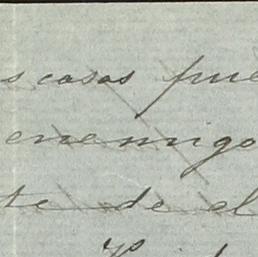 s casas fue
enemigo
te de el